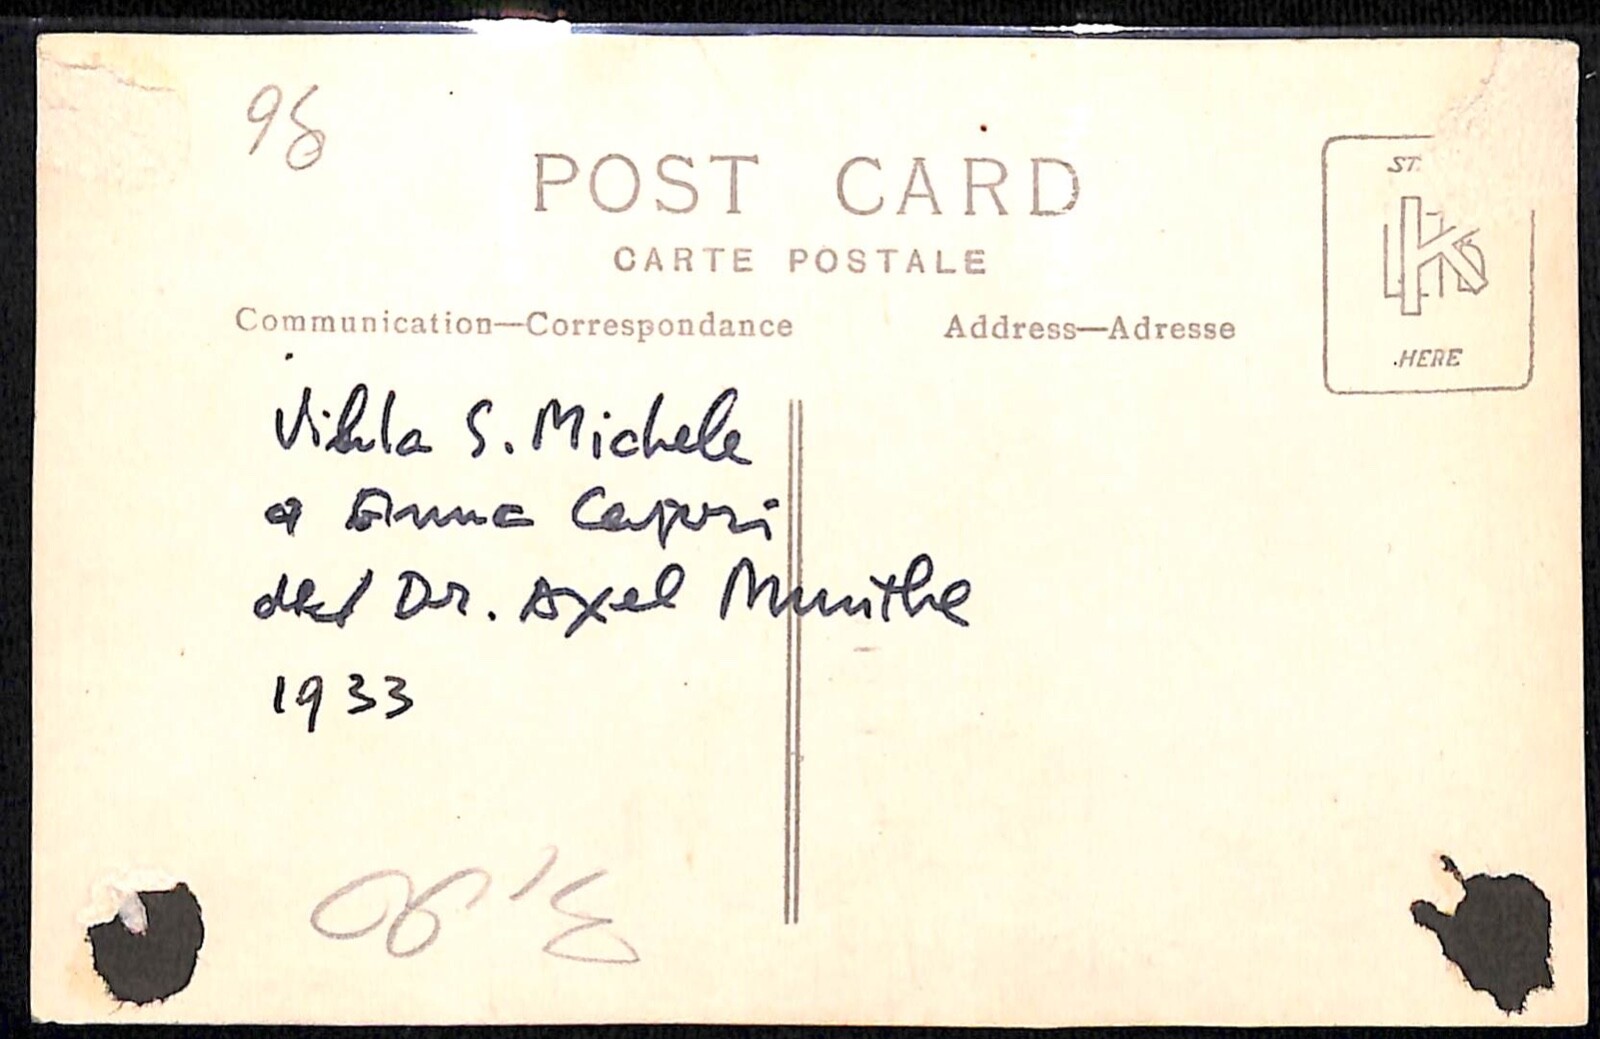 98
POST CARD
CARTE POSTALE
Communication—Correspondance
Address—Adresse
ST
K
HERE
Villa S. Michele
a Anna Capri
del Dr. Axel Munthe
1933